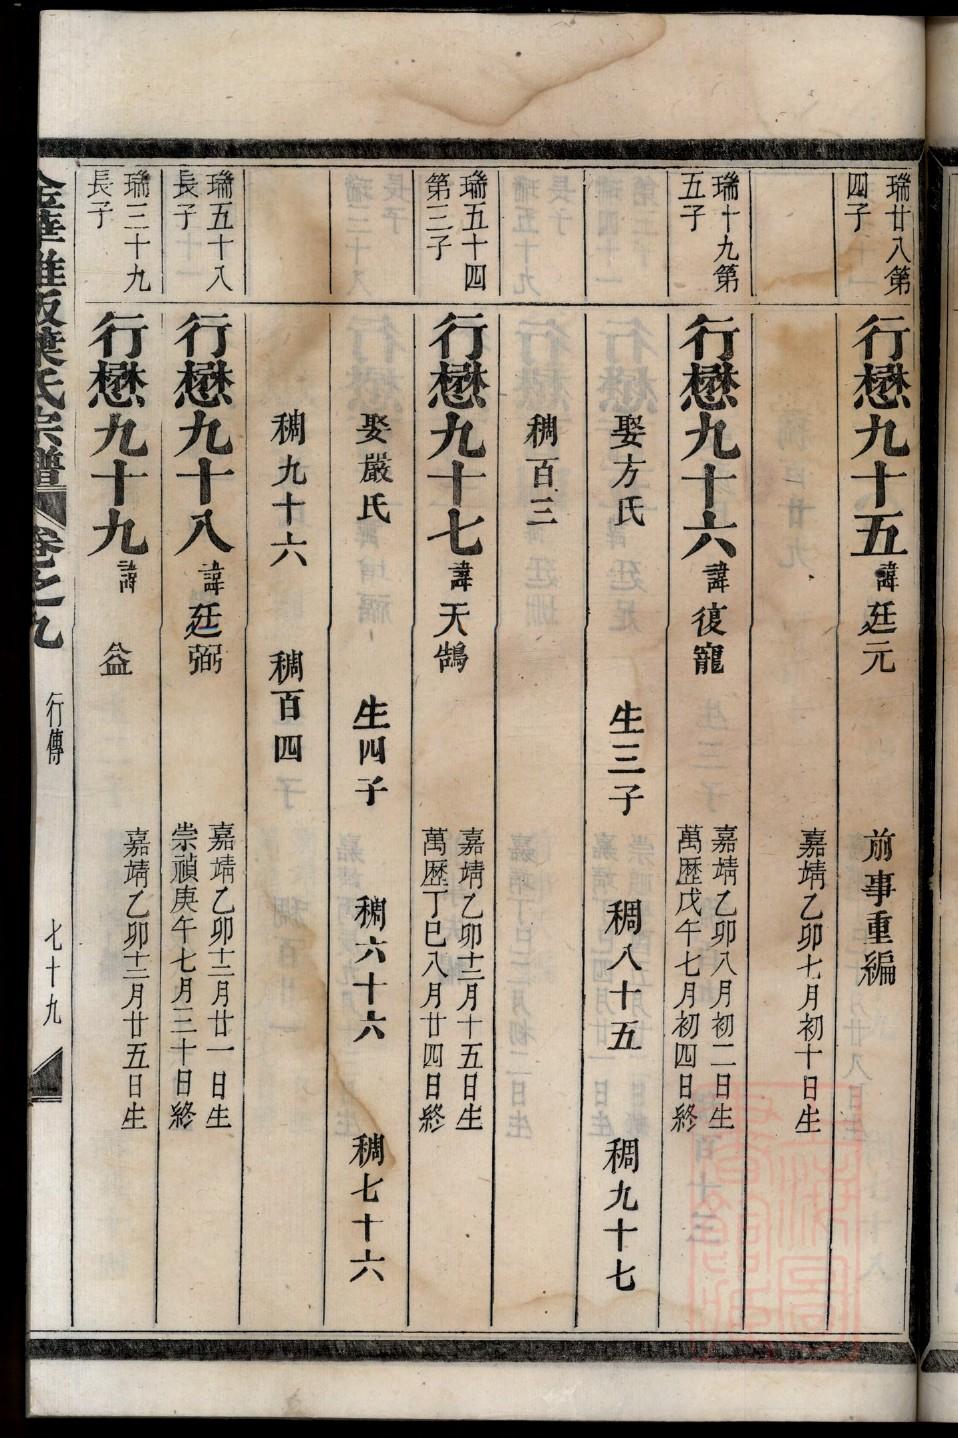 瑞廿八第
四子
行懋九十五 諱廷元 前事重編
嘉靖乙卯七月初十日生
瑞十九第
五子
行懋九十六 諱復寵
嘉靖乙卯八月初二日生
萬歷戊午七月初四日終
娶方氏 生三子 稠八十五 稠九十七
稠百三
瑞五十四
第三子
行懋九十七 諱天鵠
嘉靖乙卯十二月十五日生
萬歷丁巳八月廿四日終
娶嚴氏 生四子 稠六十六 稠七十六
稠九十六 稠百四
瑞五十八
長子
行懋九十八 諱廷弼
嘉靖乙卯十二月廿一日生
崇禎庚午七月三十日終
瑞三十九
長子
行懋九十九 諱益
嘉靖乙卯十二月廿五日生
葉氏宗譜 卷之九 行傳 七十九